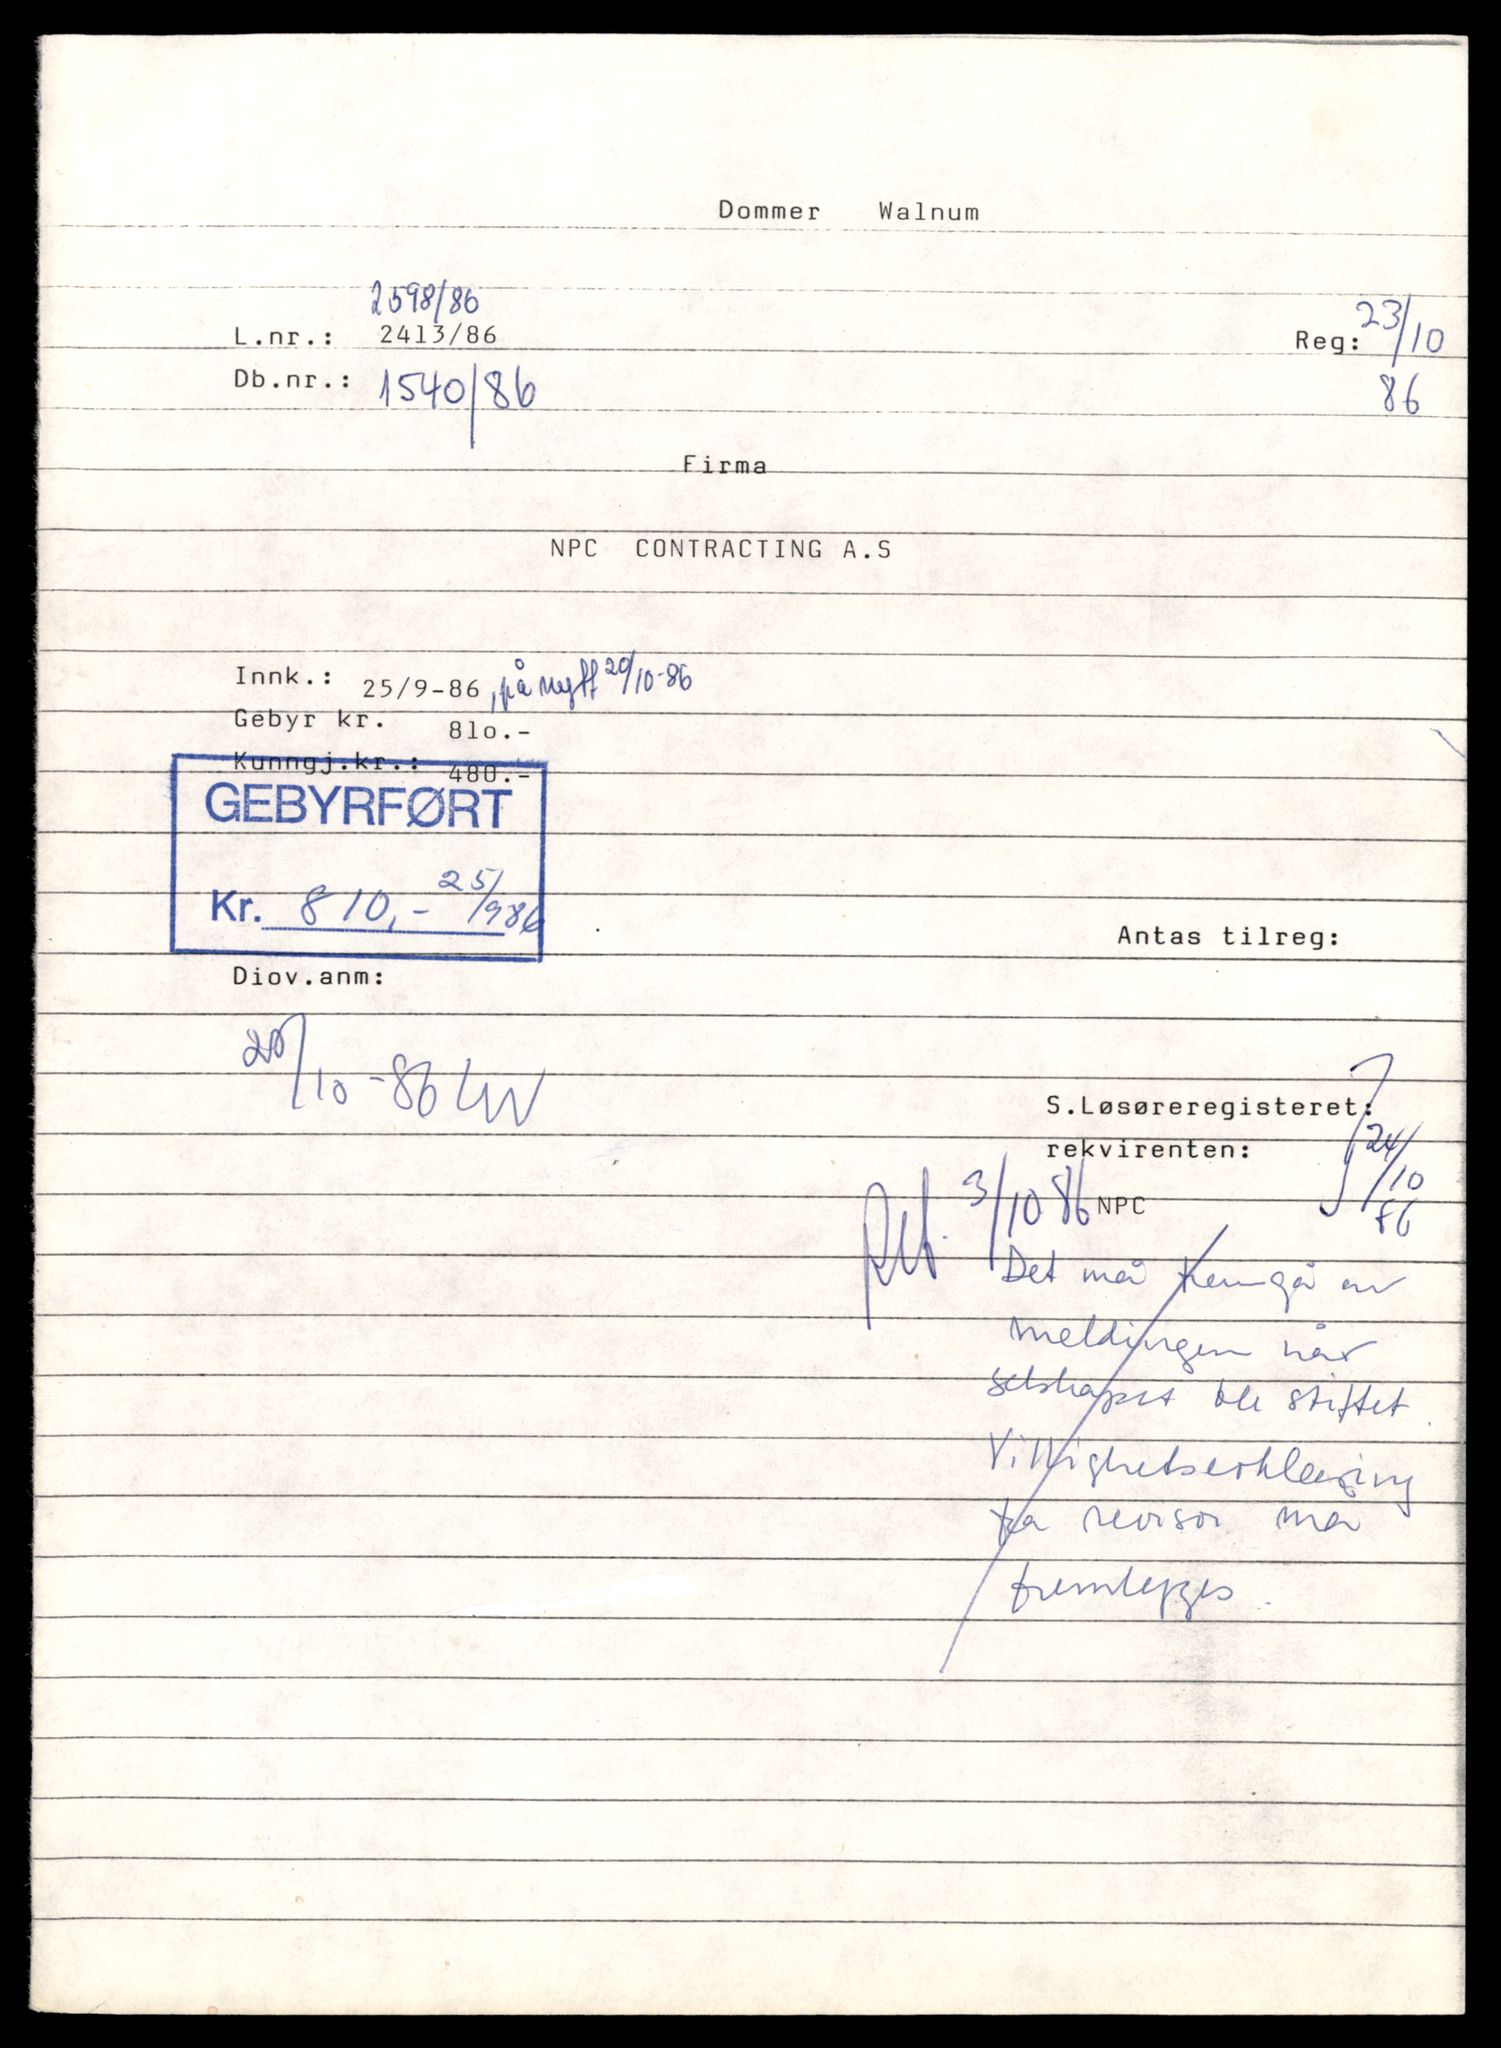 Dommer Walnum
2598/86
L.nr.: 2413/86
Reg: 23/10
86
Db.nr.: 1540/86
Firma
NPC CONTRACTING A.S
Innk.: 25/9-86, på nytt 20/10-86
Gebyr kr. 81o.-
Kunngj.kr.: 480.-
GEBYRFØRT
Kr. 810,- 25/9 86
Antas tilreg:
Diov.anm:
20/10-86 LW
S.Løsøreregisteret:
rekvirenten: 24/10
86
Ret. 3/10 86 NPC
Det må fremgå av
meldingen når
selskapet ble stiftet.
Villighetserklæring
fra revisor må
fremlegges.